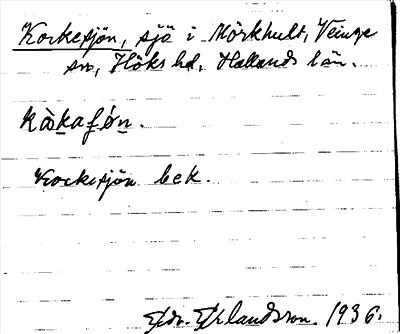 Korkesjön, sjö i Mörkhult, Veinge
sn, Höks hd, Hallands län.
kɔ̀kafǿn.
Korkesjön bek.
Erlandsson. 1936.